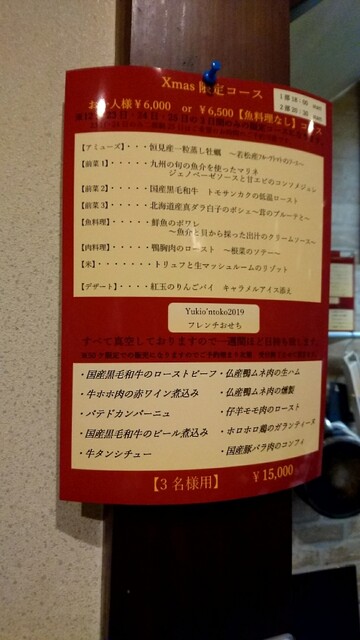 Xmas 限定コース
1部 18:00
2部 20:30
お一人様￥6,000 or ￥6,500【魚料理なし】コース
【アミューズ】・・・恒見産一粒蒸し牡蠣
【前菜1】・・・・九州の旬の魚介を使ったマリネ
ジェノベーゼソースと甘エビのコンソメジュレ
【前菜2】・・・・国産黒毛和牛 トモサンカクの低温ロースト
【前菜3】・・・・北海道産真ダラ白子のポシェ〜茸のブルーテ〜
【魚料理】・・・・鮮魚のポワレ
〜魚介と貝から採った出汁のクリームソース〜
【肉料理】・・・・鴨胸肉のロースト 〜根菜のソテー〜
【米】・・・・・・トリュフと生マッシュルームのリゾット
【デザート】・・・紅玉のりんごパイ キャラメルアイス添え
Yukio'ntoko2019
フレンチおせち
すべて真空しておりますので一週間ほど日持ち致します
・国産黒毛和牛のローストビーフ
・牛ホホ肉の赤ワイン煮込み
・パテドカンパーニュ
・国産黒毛和牛のビール煮込み
・牛タンシチュー
・仏産鴨ムネ肉の生ハム
・仏産鴨ムネ肉の燻製
・仔羊モモ肉のロースト
・ホロホロ鶏のガランティーヌ
・国産豚バラ肉のコンフィ
【3名様用】 ￥15,000